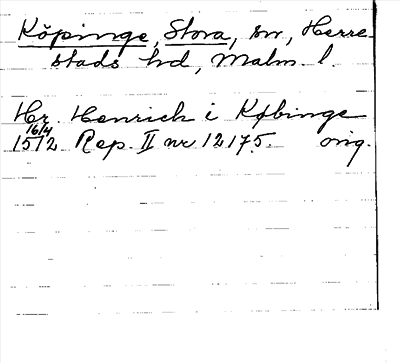 Köpinge, Stora, sn, Herre-
stads hd, Malm. l.
Hr. Henrich i Købinge
16/4
1512 Rep. II nr 12175. orig.